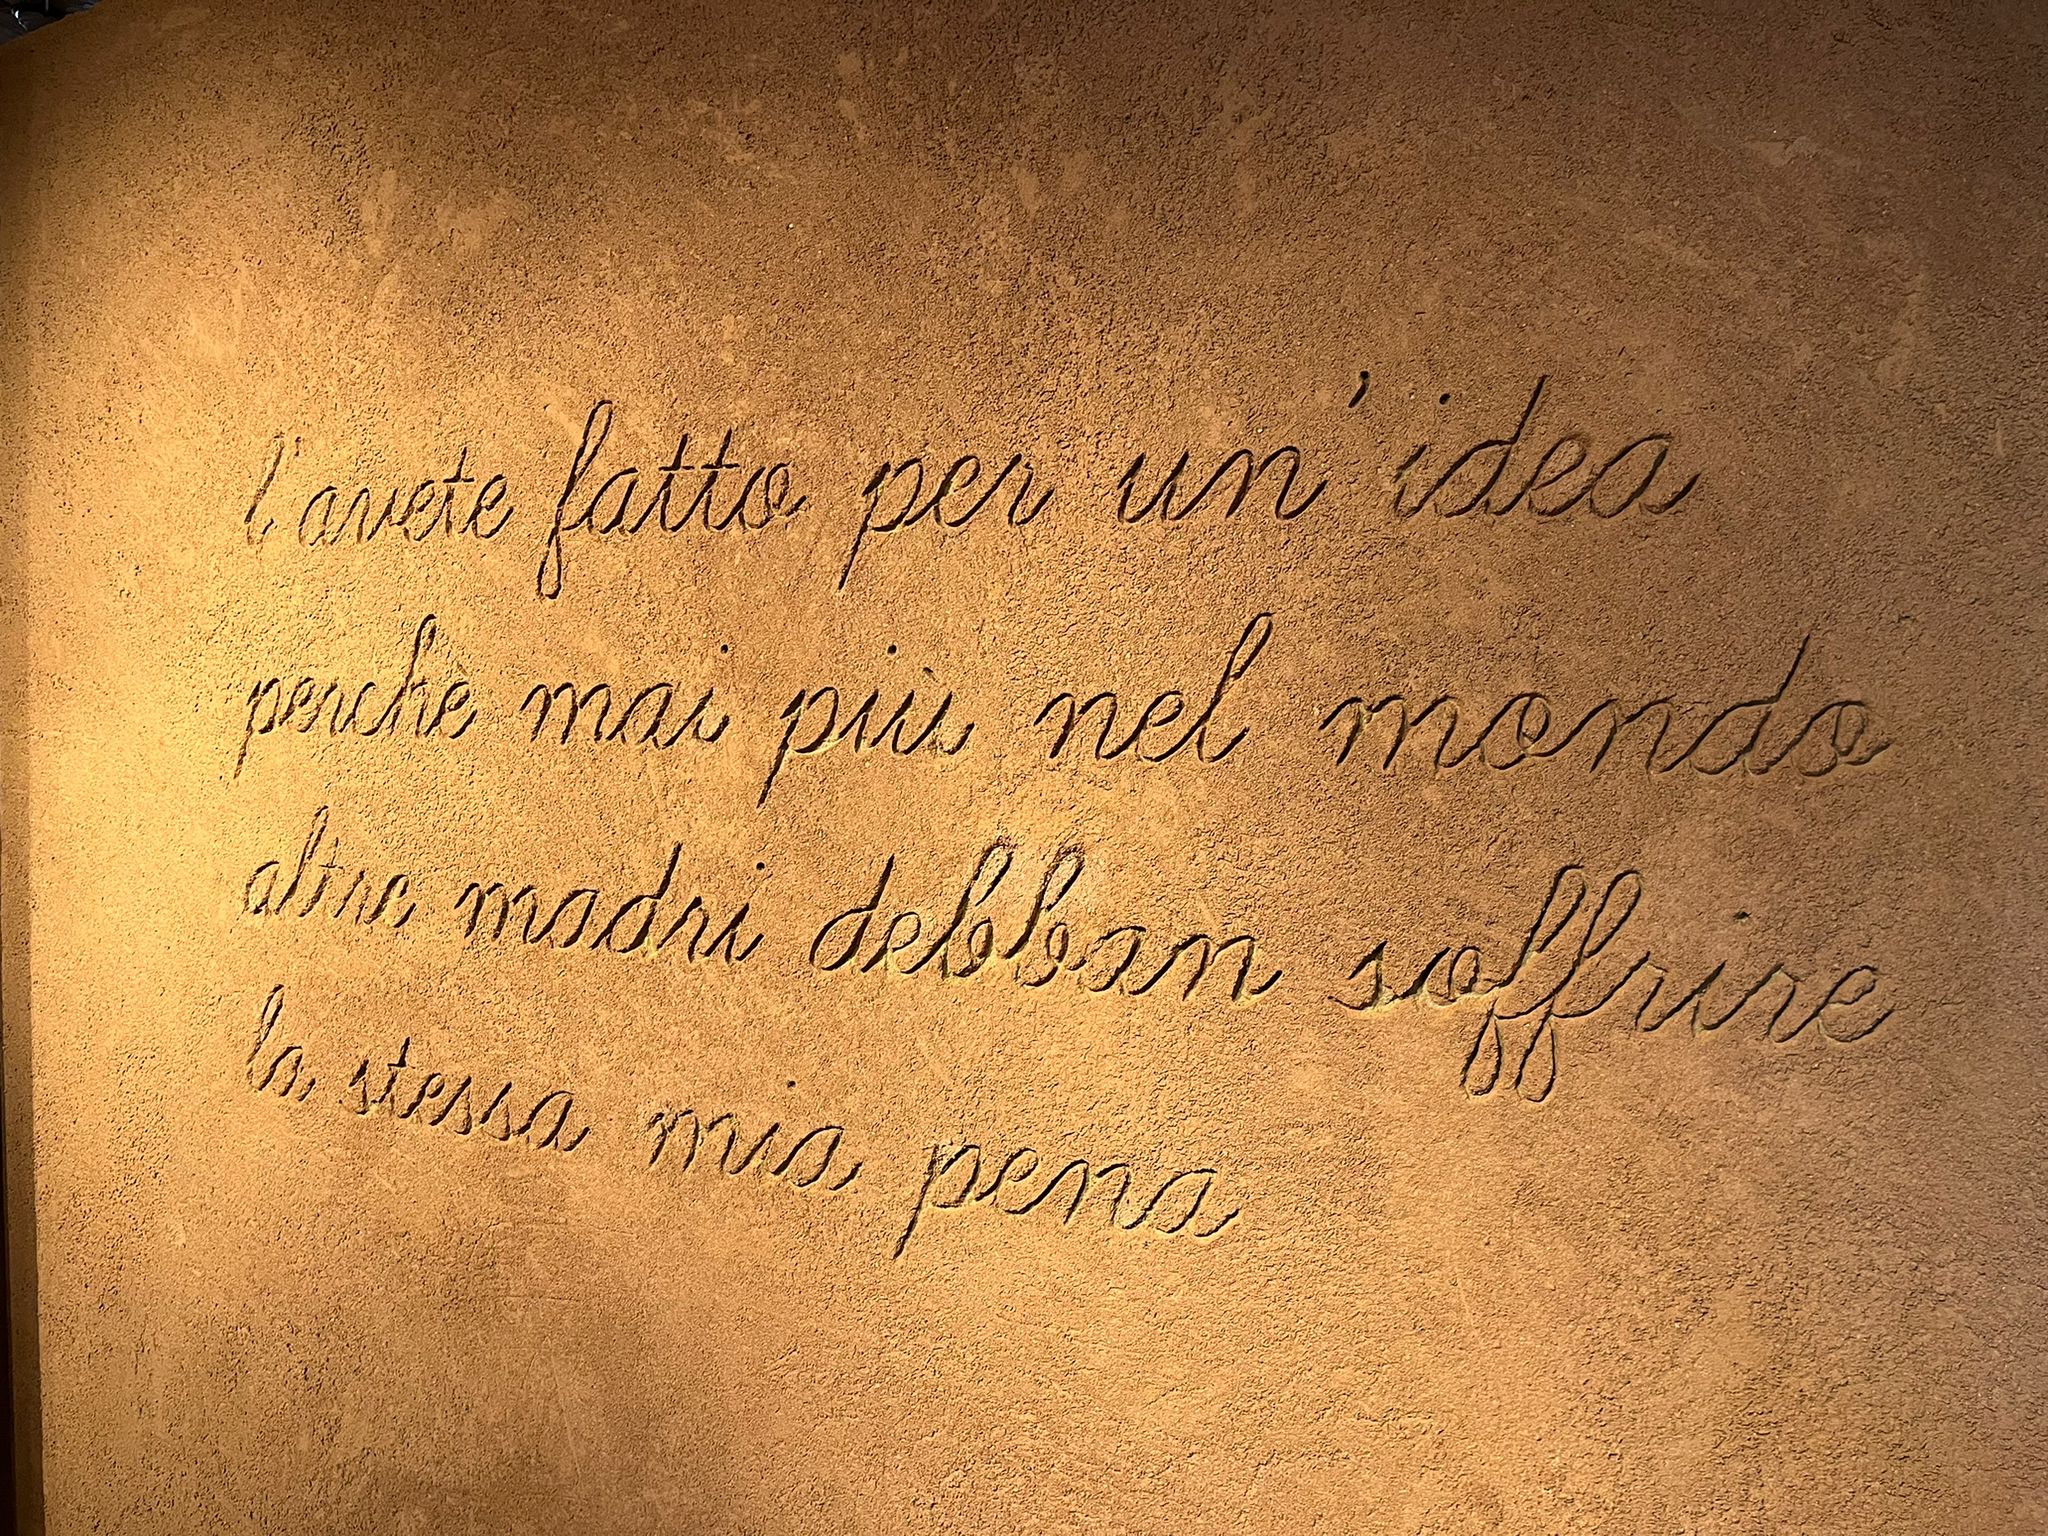 l'avete fatto per un'idea
perchè mai più nel mondo
altre madri debban soffrire
la stessa mia pena